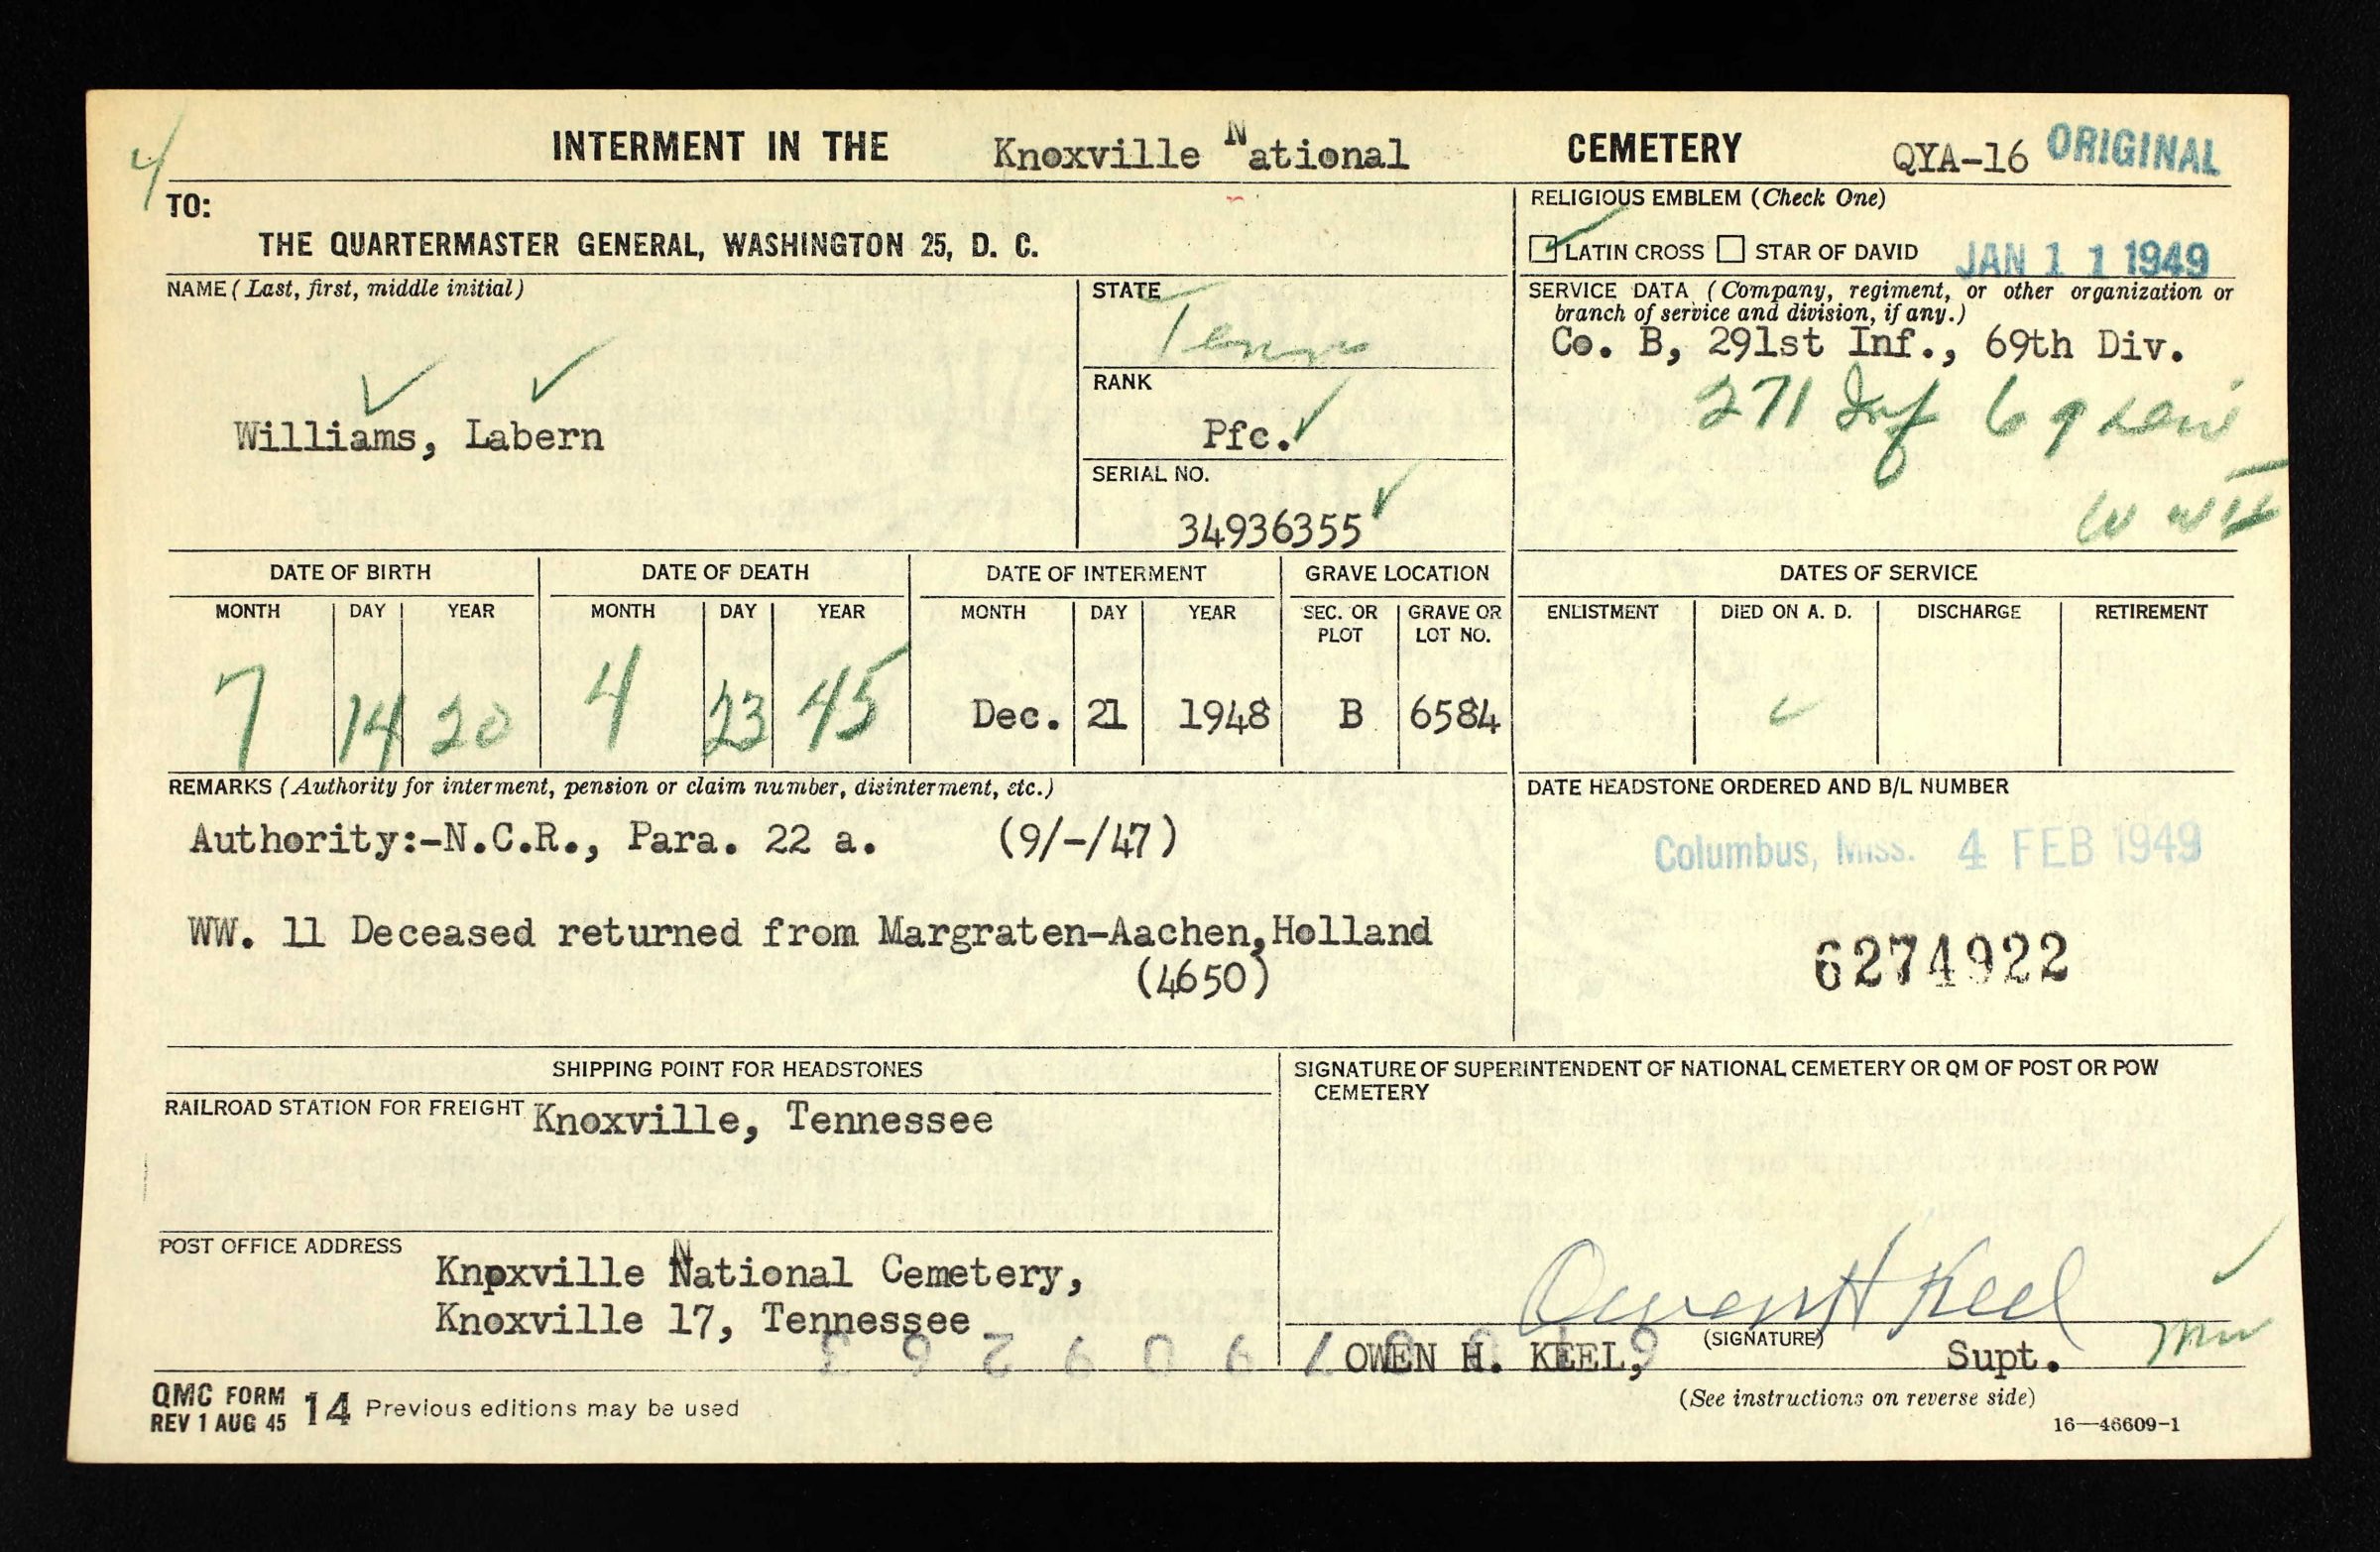 4
INTERMENT IN THE Knoxville National CEMETERY QYA-16 ORIGINAL
TO:
THE QUARTERMASTER GENERAL, WASHINGTON 25, D. C.
RELIGIOUS EMBLEM (Check One)
LATIN CROSS STAR OF DAVID JAN 11 1949
NAME (Last, first, middle initial)
Williams, Labern
STATE
Tenn
RANK
Pfc.
SERIAL NO.
34936355
SERVICE DATA (Company, regiment, or other organization or
branch of service and division, if any.)
Co. B, 291st Inf., 69th Div.
271 Inf 69 Div
WW II
DATE OF BIRTH DATE OF DEATH DATE OF INTERMENT GRAVE LOCATION DATES OF SERVICE
MONTH DAY YEAR MONTH DAY YEAR MONTH DAY YEAR SEC. OR PLOT GRAVE OR LOT NO. ENLISTMENT DIED ON A. D. DISCHARGE RETIREMENT
7 14 20 4 23 45 Dec. 21 1948 B 6584
REMARKS (Authority for interment, pension or claim number, disinterment, etc.)
Authority:-N.C.R., Para. 22 a. (9/-/47)
WW. 11 Deceased returned from Margraten-Aachen,Holland
(4650)
DATE HEADSTONE ORDERED AND B/L NUMBER
Columbus, Miss. 4 FEB 1949
6274922
SHIPPING POINT FOR HEADSTONES
RAILROAD STATION FOR FREIGHT Knoxville, Tennessee
POST OFFICE ADDRESS
Knpxville National Cemetery,
Knoxville 17, Tennessee
SIGNATURE OF SUPERINTENDENT OF NATIONAL CEMETERY OR QM OF POST OR POW
CEMETERY
Owen H Keel
(SIGNATURE)
OWEN H. KEEL, Supt.
(See instructions on reverse side)
QMC FORM 14 Previous editions may be used
REV 1 AUG 45
16—46609-1